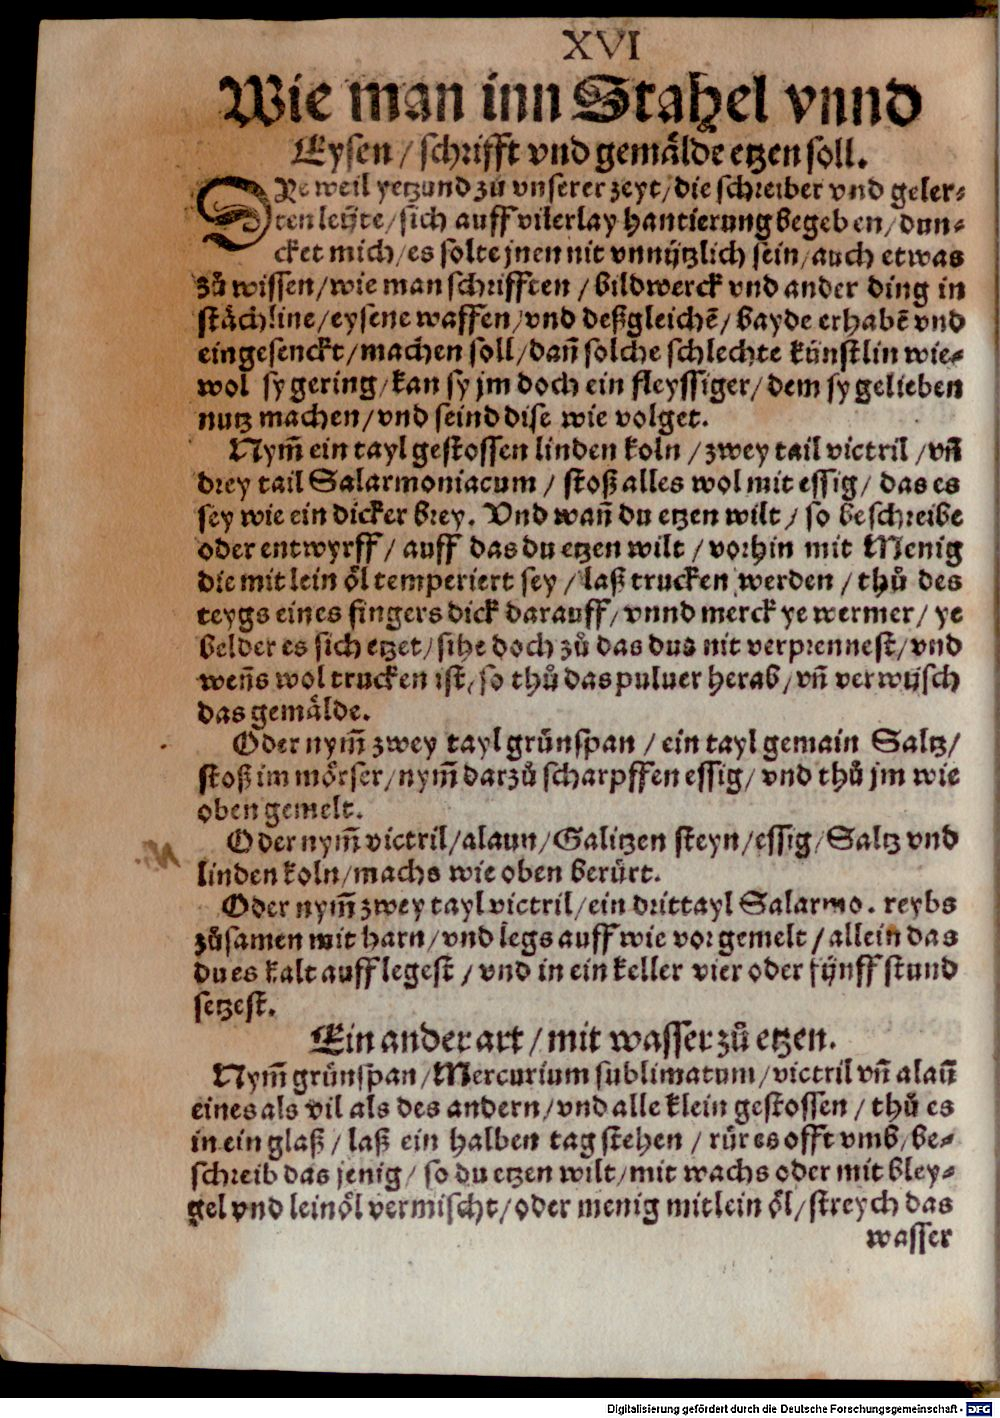 XVI
Wie man inn Stahel vnnd
Eysen / schrifft vnd gemålde etzen soll.
DIeweil yetzund zů vnserer zeyt / die schreiber vnd geler⸗
ten leỹte / sich auff vilerlay hantierung begeben / dun⸗
cket mich / es solte jnen nit vnnỹtzlich sein / auch etwas
zů wissen / wie man schrifften / bildwerck vnd ander ding in
ståchline / eysene waffen / vnd deßgleichẽ / bayde erhabẽ vnd
eingesenckt / machen soll / dañ solche schlechte kůnstlin wie⸗
wol sy gering / kan sy jm doch ein fleyssiger / dem sy gelieben
nutz machen / vnd seind dise wie volget.
Nym̃ ein tayl gestossen linden koln / zwey tail victril / vñ
drey tail Salarmoniacum / stoß alles wol mit essig / das es
sey wie ein dicker brey. Vnd wañ du etzen wilt / so beschreibe
oder entwyrff / auff das du etzen wilt / vorhin mit Menig
die mit lein ȯl temperiert sey / laß trucken werden / thů des
teygs eines fingers dick darauff / vnnd merck ye wermer / ye
belder es sich etzet / sihe doch zů das dus nit verprennest / vnd
weñs wol trucken ist / so thů das puluer herab / vñ verwỹsch
das gemålde.
Oder nym̃ zwey tayl grůnspan / ein tayl gemain Saltz /
stoß im mȯrser / nym̃ darzů scharpffen essig / vnd thů jm wie
oben gemelt.
Oder nym̃ victril / alaun / Galitzen steyn / essig / Saltz vnd
linden koln / machs wie oben berůrt.
Oder nym̃ zwey tayl victril / ein drittayl Salarmo. reybs
zůsamen mit harn / vnd legs auff wie vor gemelt / allein das
du es kalt auff legest / vnd in ein keller vier oder fỹnff stund
setzest.
Ein ander art / mit wasser zů etzen.
Nym̃ grůnspan / Mercurium sublimatum / victril vñ alaũ
eines als vil als des andern / vnd alle klein gestossen / thů es
in ein glaß / laß ein halben tag stehen / růr es offt vmb / be⸗
schreib das jenig / so du etzen wilt / mit wachs oder mit bley⸗
gel vnd leinȯl vermischt / oder menig mit lein ȯl / streych das
wasser
Digitalisierung gefördert durch die Deutsche Forschungsgemeinschaft - DFG